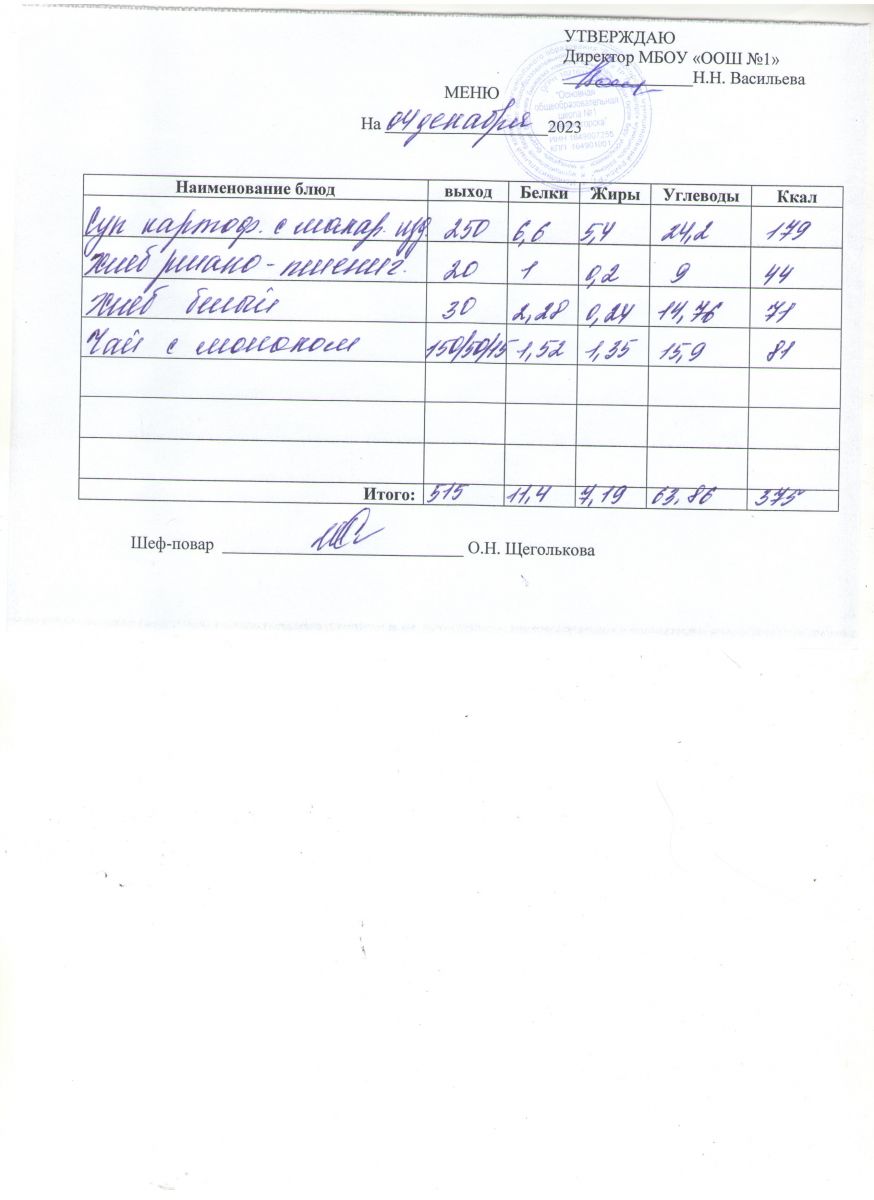 УТВЕРЖДАЮ
Директор МБОУ «ООШ №1»
Н.Н. Васильева
"Основная
общеобразовательная
школа №1
МЕНЮ
На 04 декабря 2023
Наименование блюд выход Белки Жиры Углеводы Ккал
Суп картоф. с макар. изд. 250 6,6 5,4 24,2 179
Хлеб ржано-пшенич. 20 1 0,2 9 44
Хлеб белый 30 2,28 0,24 14,76 71
Чай с молоком 150/50/15 1,52 1,35 15,9 81
Итого: 515 11,4 7,19 63,86 375
Шеф-повар О.Н. Щеголькова